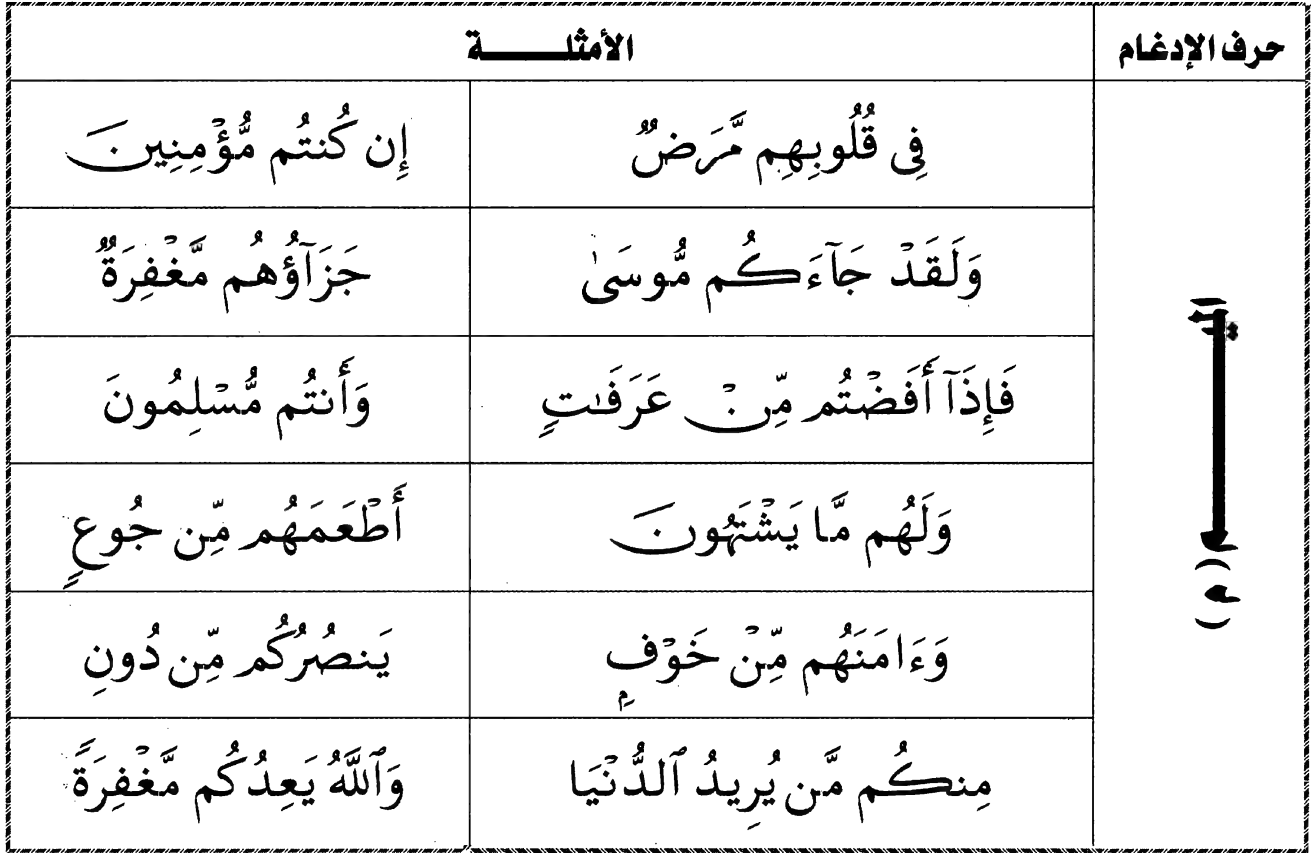 حرف الإدغام الأمثلـــــة
الميم (م)
فِى قُلُوبِهِم مَّرَضٌ إِن كُنتُم مُّؤْمِنِينَ
وَلَقَدْ جَآءَكُم مُّوسَىٰ جَزَآؤُهُم مَّغْفِرَةٌ
فَإِذَآ أَفَضْتُم مِّنْ عَرَفَـٰتٍ وَأَنتُم مُّسْلِمُونَ
وَلَهُم مَّا يَشْتَهُونَ أَطْعَمَهُم مِّن جُوعٍ
وَءَامَنَهُم مِّنْ خَوْفٍۭ يَنصُرُكُم مِّن دُونِ
مِنكُم مَّن يُرِيدُ ٱلدُّنْيَا وَٱللَّهُ يَعِدُكُم مَّغْفِرَةً